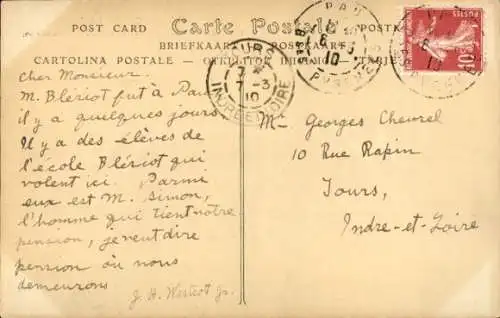 POST CARD Carte Postale POSTK
BRIEFKAART
CARTOLINA POSTALE
PAU
6 3
10
TOURS
7 3
10
INDRE-ET-LOIRE
POSTES
10
cher Monsieur.
M. Blériot fut à Pau
il y a quelques jours
Il y a des élèves de
l'école Blériot qui
volent ici. Parmi
eux est M. Simon,
l'homme qui tient notre
pension, je veut dire
pension où nous
demeurons
J. H. Westcott Jr.
Mr Georges Cheurel
10 Rue Rapin
Tours,
Indre-et-Loire